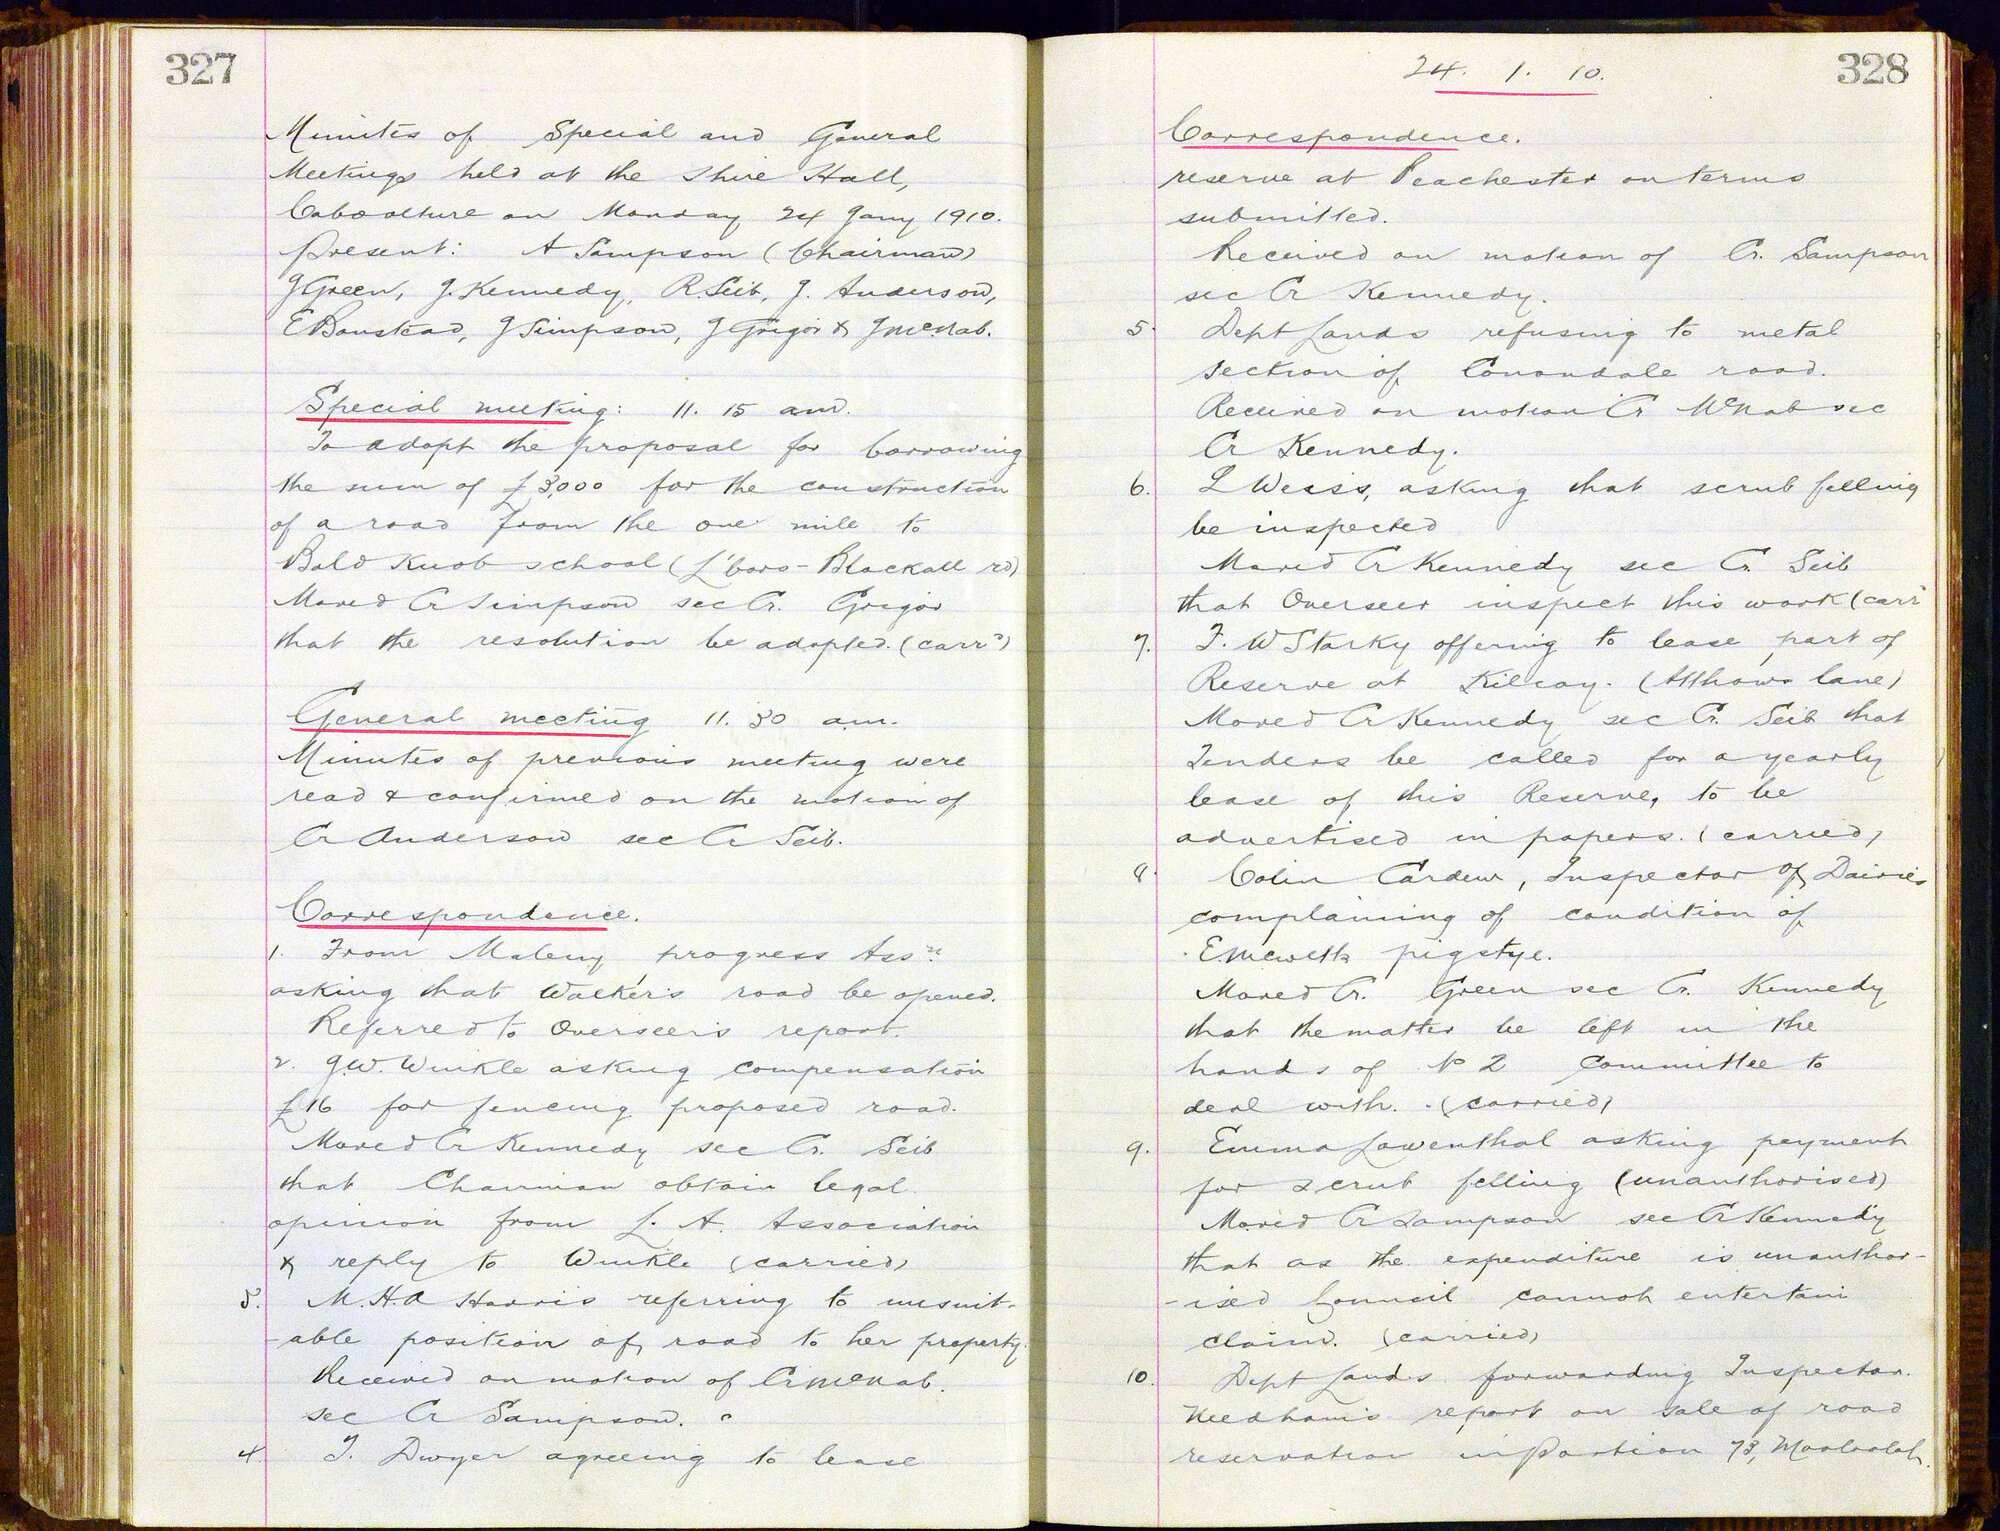 327
Minutes of Special and General
Meetings held at the Shire Hall,
Caboolture on Monday 24 Jany 1910.
Present: A Sampson (Chairman)
J Green, J. Kennedy, R. Seib, J. Anderson,
E Banstead, J Simpson, J Grigor & J McNab.
Special meeting: 11.15 am.
To adopt the proposal for borrowing
the sum of £3,000 for the construction
of a road from the one mile to
Bald Knob school (L'boro-Blackall rd)
Moved Cr Simpson sec Cr. Grigor
that the resolution be adopted. (carrd)
General meeting 11.30 am.
Minutes of previous meeting were
read & confirmed on the motion of
Cr Anderson sec Cr Seib.
Correspondence.
1. From Maleny progress Assn.
asking that Walker's road be opened.
Referred to Overseer's report.
2. J.W. Winkle asking compensation
£16 for fencing proposed road.
Moved Cr Kennedy sec Cr. Seib
that Chairman obtain legal
opinion from L. A. Association
& reply to Winkle (carried)
3. M.H.A Harris referring to unsuit-
-able position of road to her property.
Received on motion of Cr McNab.
sec Cr Sampson.
4. T. Dwyer agreeing to lease
24. 1. 10.
328
Correspondence.
reserve at Peachester on terms
submitted.
Received on motion of Cr. Sampson
sec Cr Kennedy.
5. Dept Lands refusing to metal
section of Conondale road.
Received on motion Cr McNab sec
Cr Kennedy.
6. L Weiss, asking that scrub felling
be inspected
Moved Cr Kennedy sec Cr. Seib
that Overseer inspect this work (carr
7. F. W Starky offering to lease part of
Reserve at Kilcoy. ( lane)
Moved Cr Kennedy sec Cr. Seib that
Tenders be called for a yearly
lease of this Reserve, to be
advertised in papers. (carried)
8. Colin Cardew, Inspector of Dairies
complaining of condition of
E. Mewett's pigstye.
Moved Cr. Green sec Cr. Kennedy
that the matter be left in the
hands of No 2 Committee to
deal with. (carried)
9. Emma Lowenthal asking payment
for scrub felling (unauthorised)
Moved Cr Sampson sec Cr Kennedy
that as the expenditure is unauthor-
-ised Council cannot entertain
claim. (carried)
10. Dept Lands forwarding Inspector.
Needham's report on sale of road
reservation in Portion 73, Mooloolah.